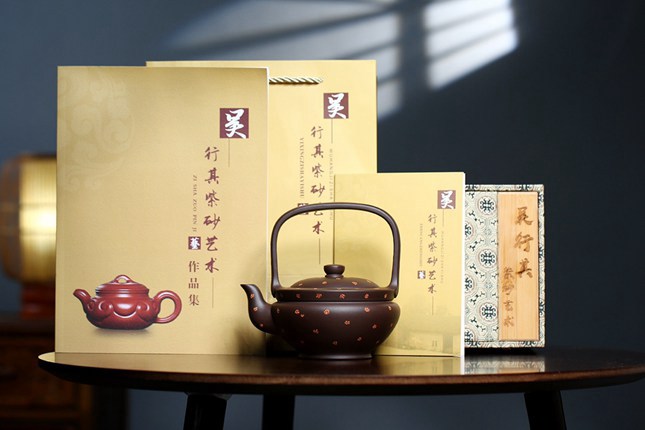 吴
行其紫砂艺术
ZI SHA ZUO PIN JI
藝
作品集
吴
行其紫砂艺术
吴
行其紫砂艺术
藝
吴行其
紫砂艺术